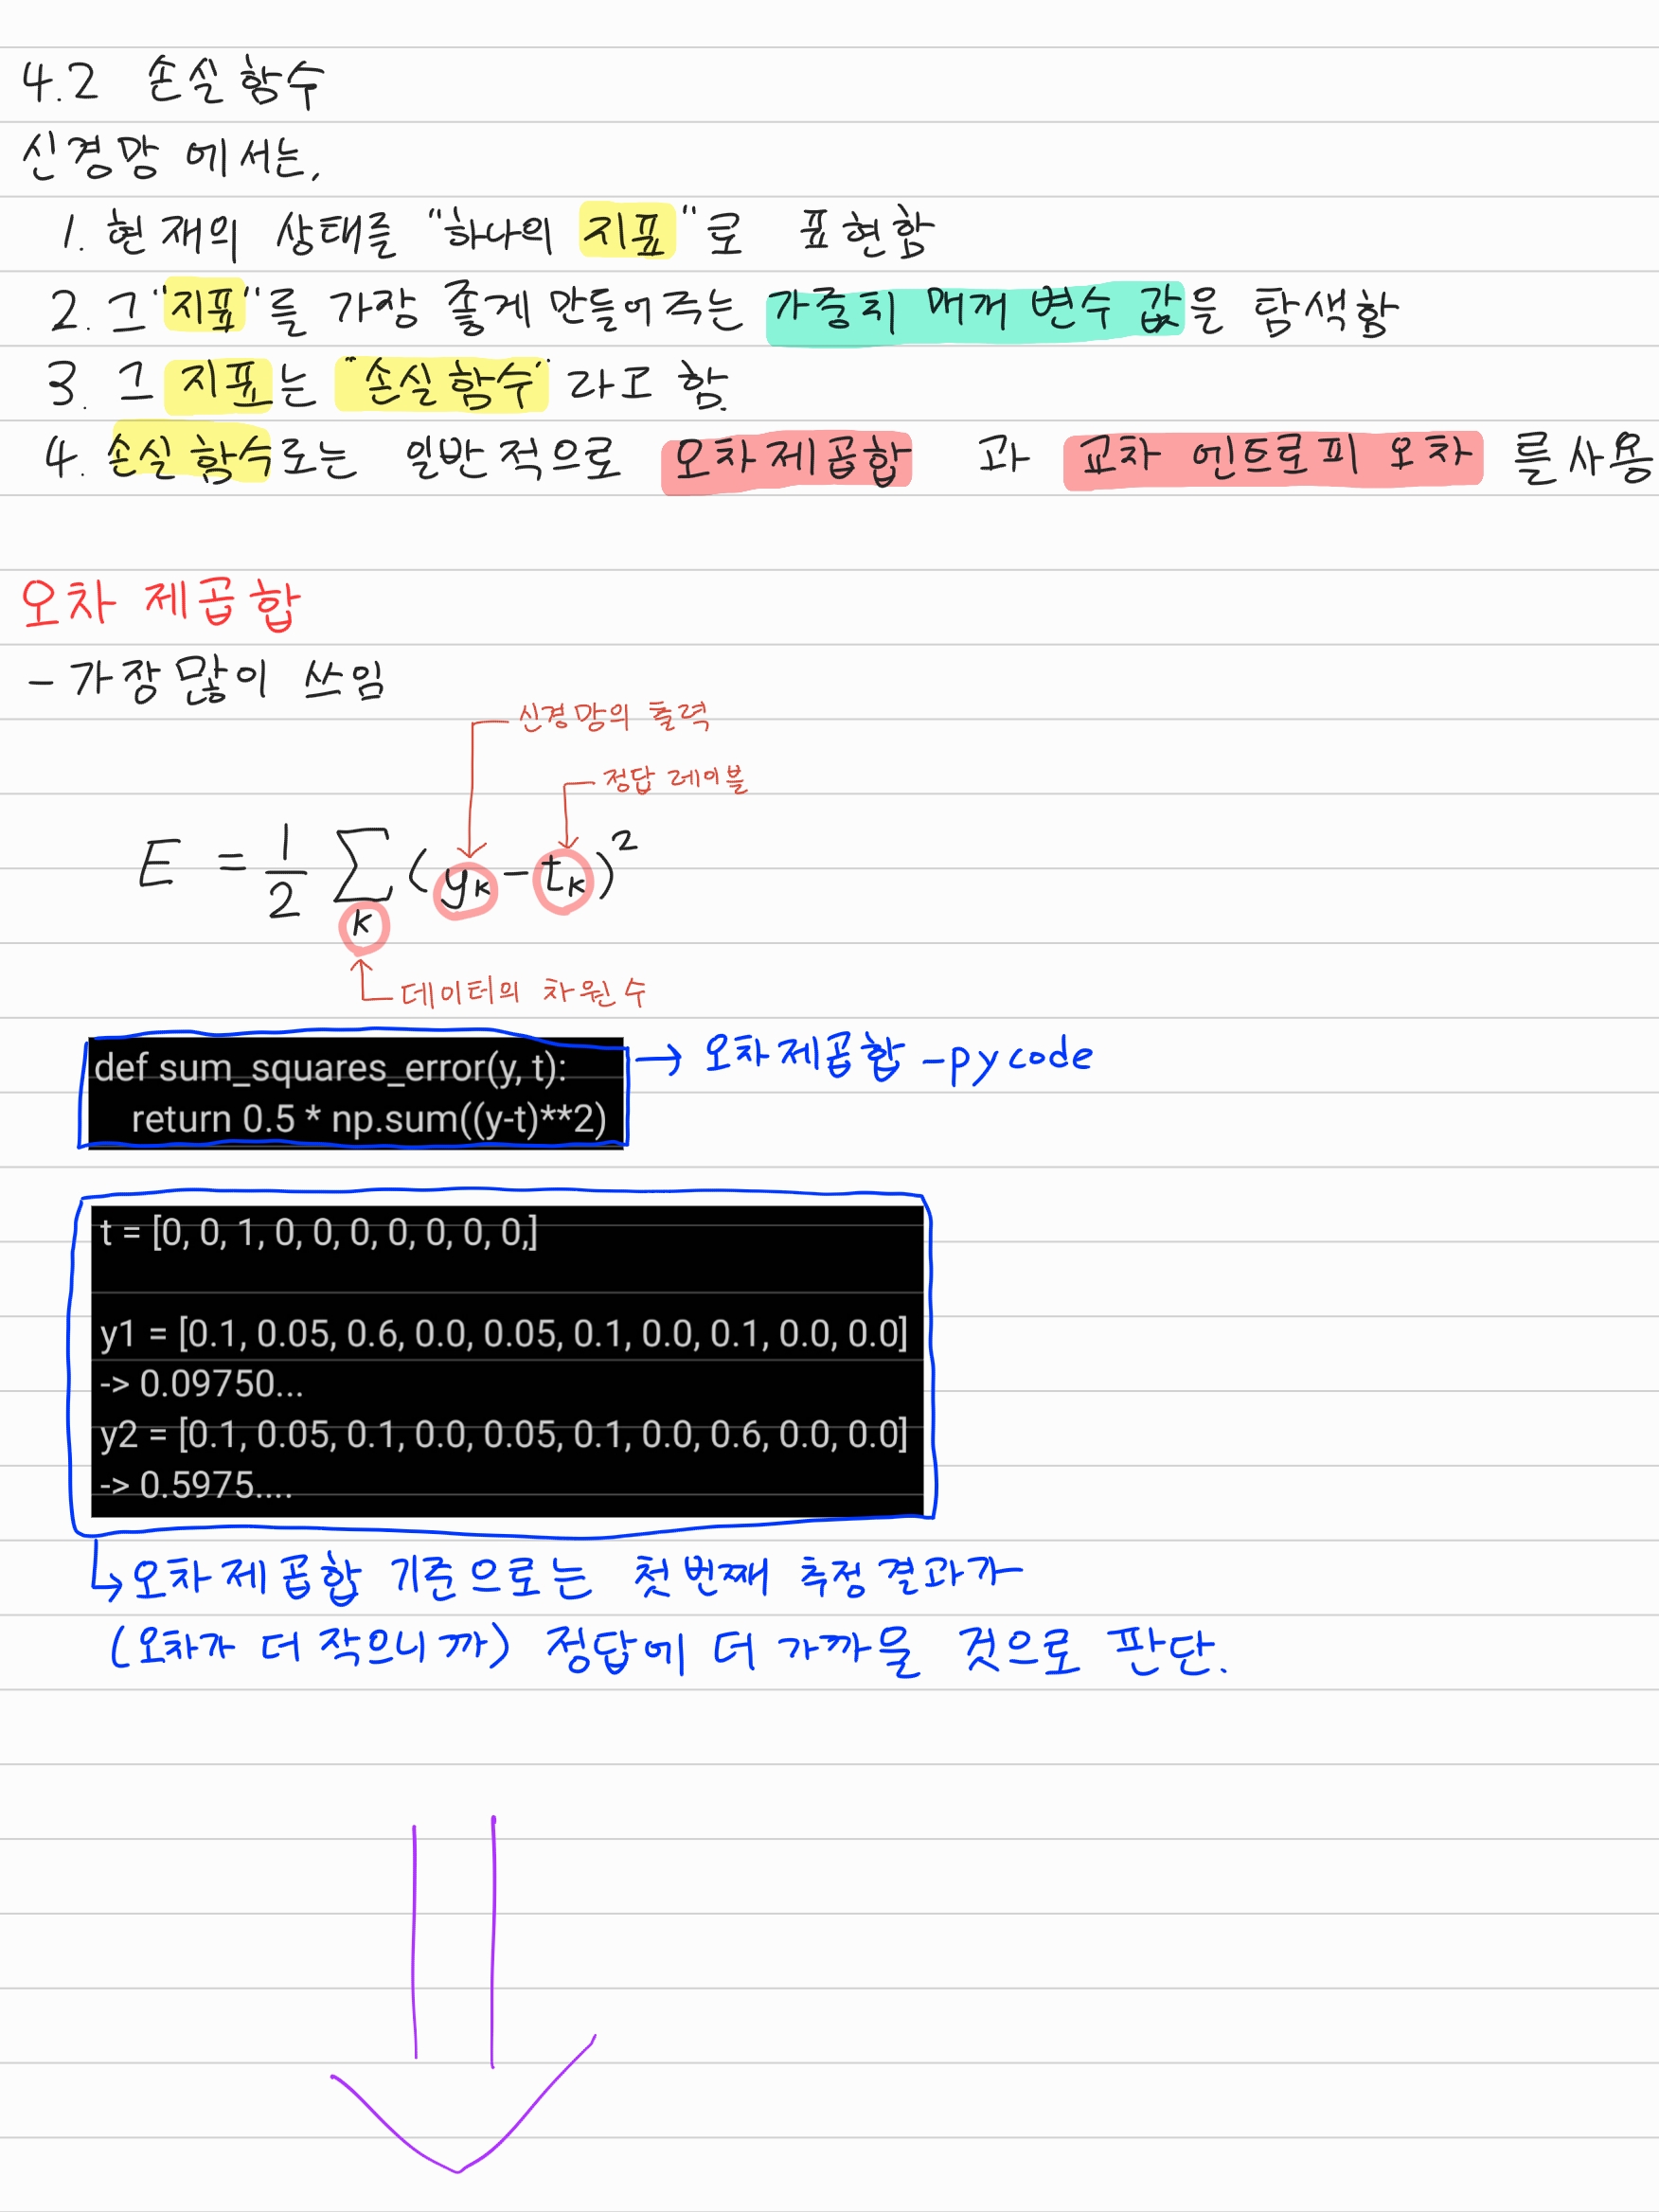 4.2 손실함수
신경망 에서는,
1. 현재의 상태를 "하나의 지표"로 표현함
2. 그 "지표"를 가장 좋게 만들어주는 가중치 매개 변수 값을 탐색함
3. 그 지표는 "손실함수" 라고 함.
4. 손실 함수로는 일반적으로 오차제곱합 과 교차 엔트로피 오차 를 사용
오차 제곱합
- 가장많이 쓰임
신경망의 출력
정답 레이블
E = 1/2 ∑ (yk - tk)²
k
데이터의 차원 수
def sum_squares_error(y, t): → 오차제곱합 - py code
return 0.5 * np.sum((y-t)**2)
t = [0, 0, 1, 0, 0, 0, 0, 0, 0, 0,]
y1 = [0.1, 0.05, 0.6, 0.0, 0.05, 0.1, 0.0, 0.1, 0.0, 0.0]
-> 0.09750...
y2 = [0.1, 0.05, 0.1, 0.0, 0.05, 0.1, 0.0, 0.6, 0.0, 0.0]
-> 0.5975....
↳ 오차제곱합 기준으로는 첫번째 추정결과가
(오차가 더 작으니까) 정답에 더 가까울 것으로 판단.